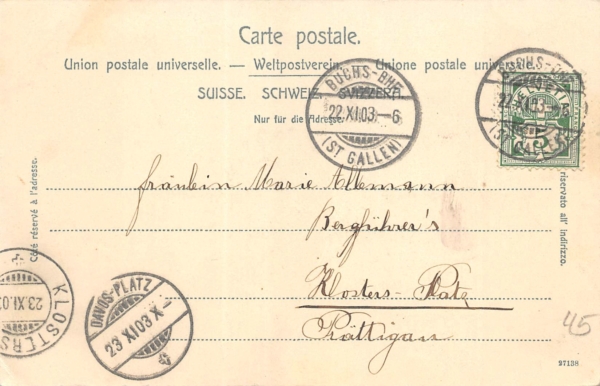 Carte postale.
Union postale universelle. — Weltpostverein. — Unione postale universelle.
SUISSE. SCHWEIZ. SVIZZERA.
Nur für die Adresse.
BUCHS-BHF.
22.XI.03.–6
(ST GALLEN)
BUCHS-BHF.
22.XI.03
(ST GALLEN)
HELVETIA
5
Côté réservé à l'adresse.
riservato all' indirizzo.
Fräulein Marie Allemann
Bergführer's
Klosters-Platz
Prättigau
KLOSTERS
23.XI.03
DAVOS-PLATZ
23.XI.03.X–
45
97138